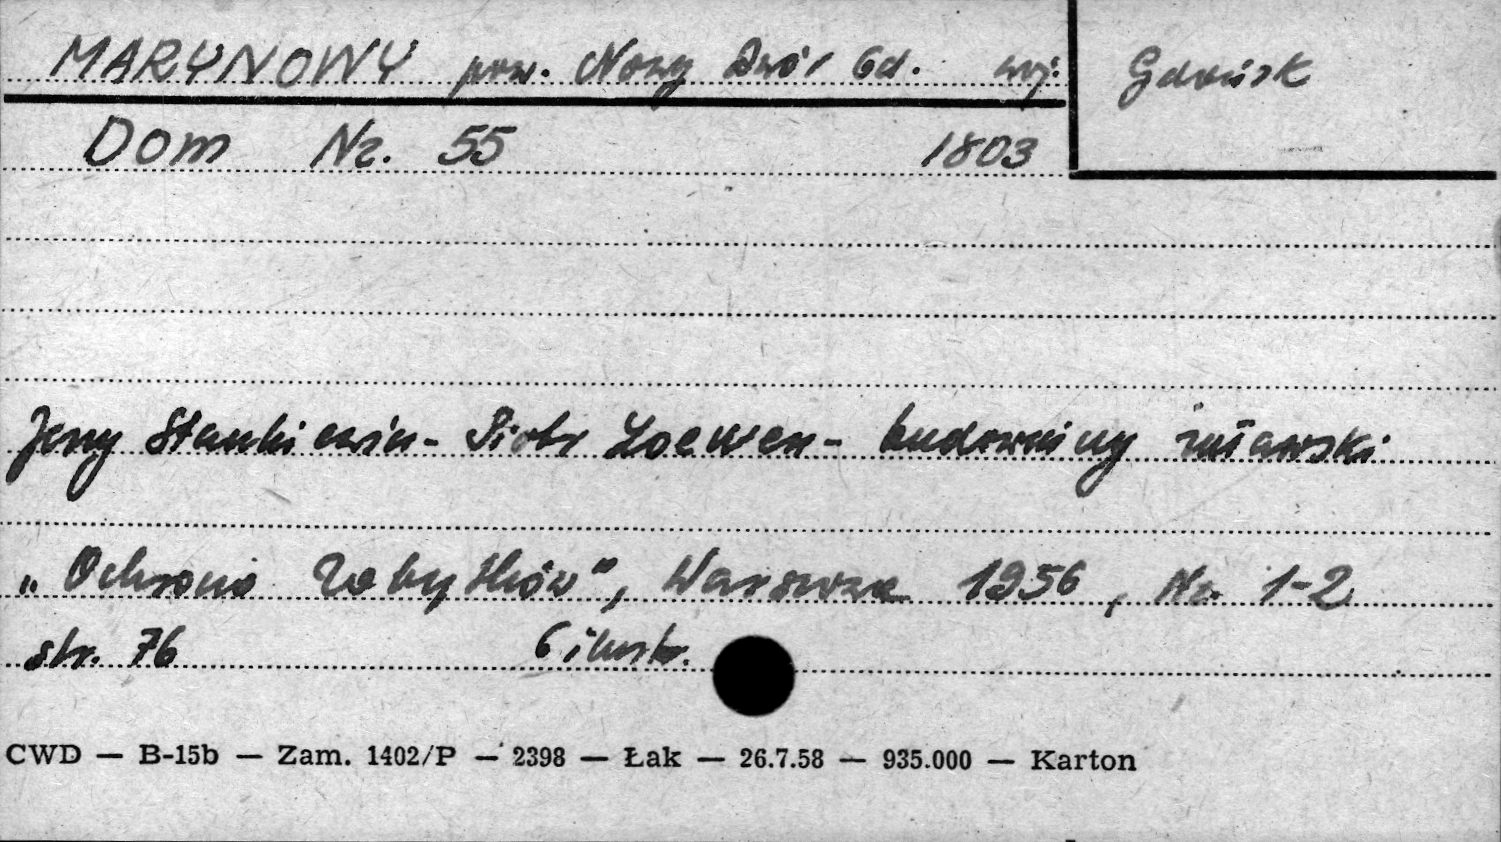 MARYNOWY pow. Nowy Dwór Gd. woj. Gdańsk
Dom Nr. 55 1803
Jerzy Stankiewicz - Piotr Loewen - budowniczy żuławski
„Ochrona Zabytków”, Warszawa 1956, Nr. 1-2
str. 76 6 ilustr.
CWD — B-15b — Zam. 1402/P — 2398 — Łak — 26.7.58 — 935.000 — Karton